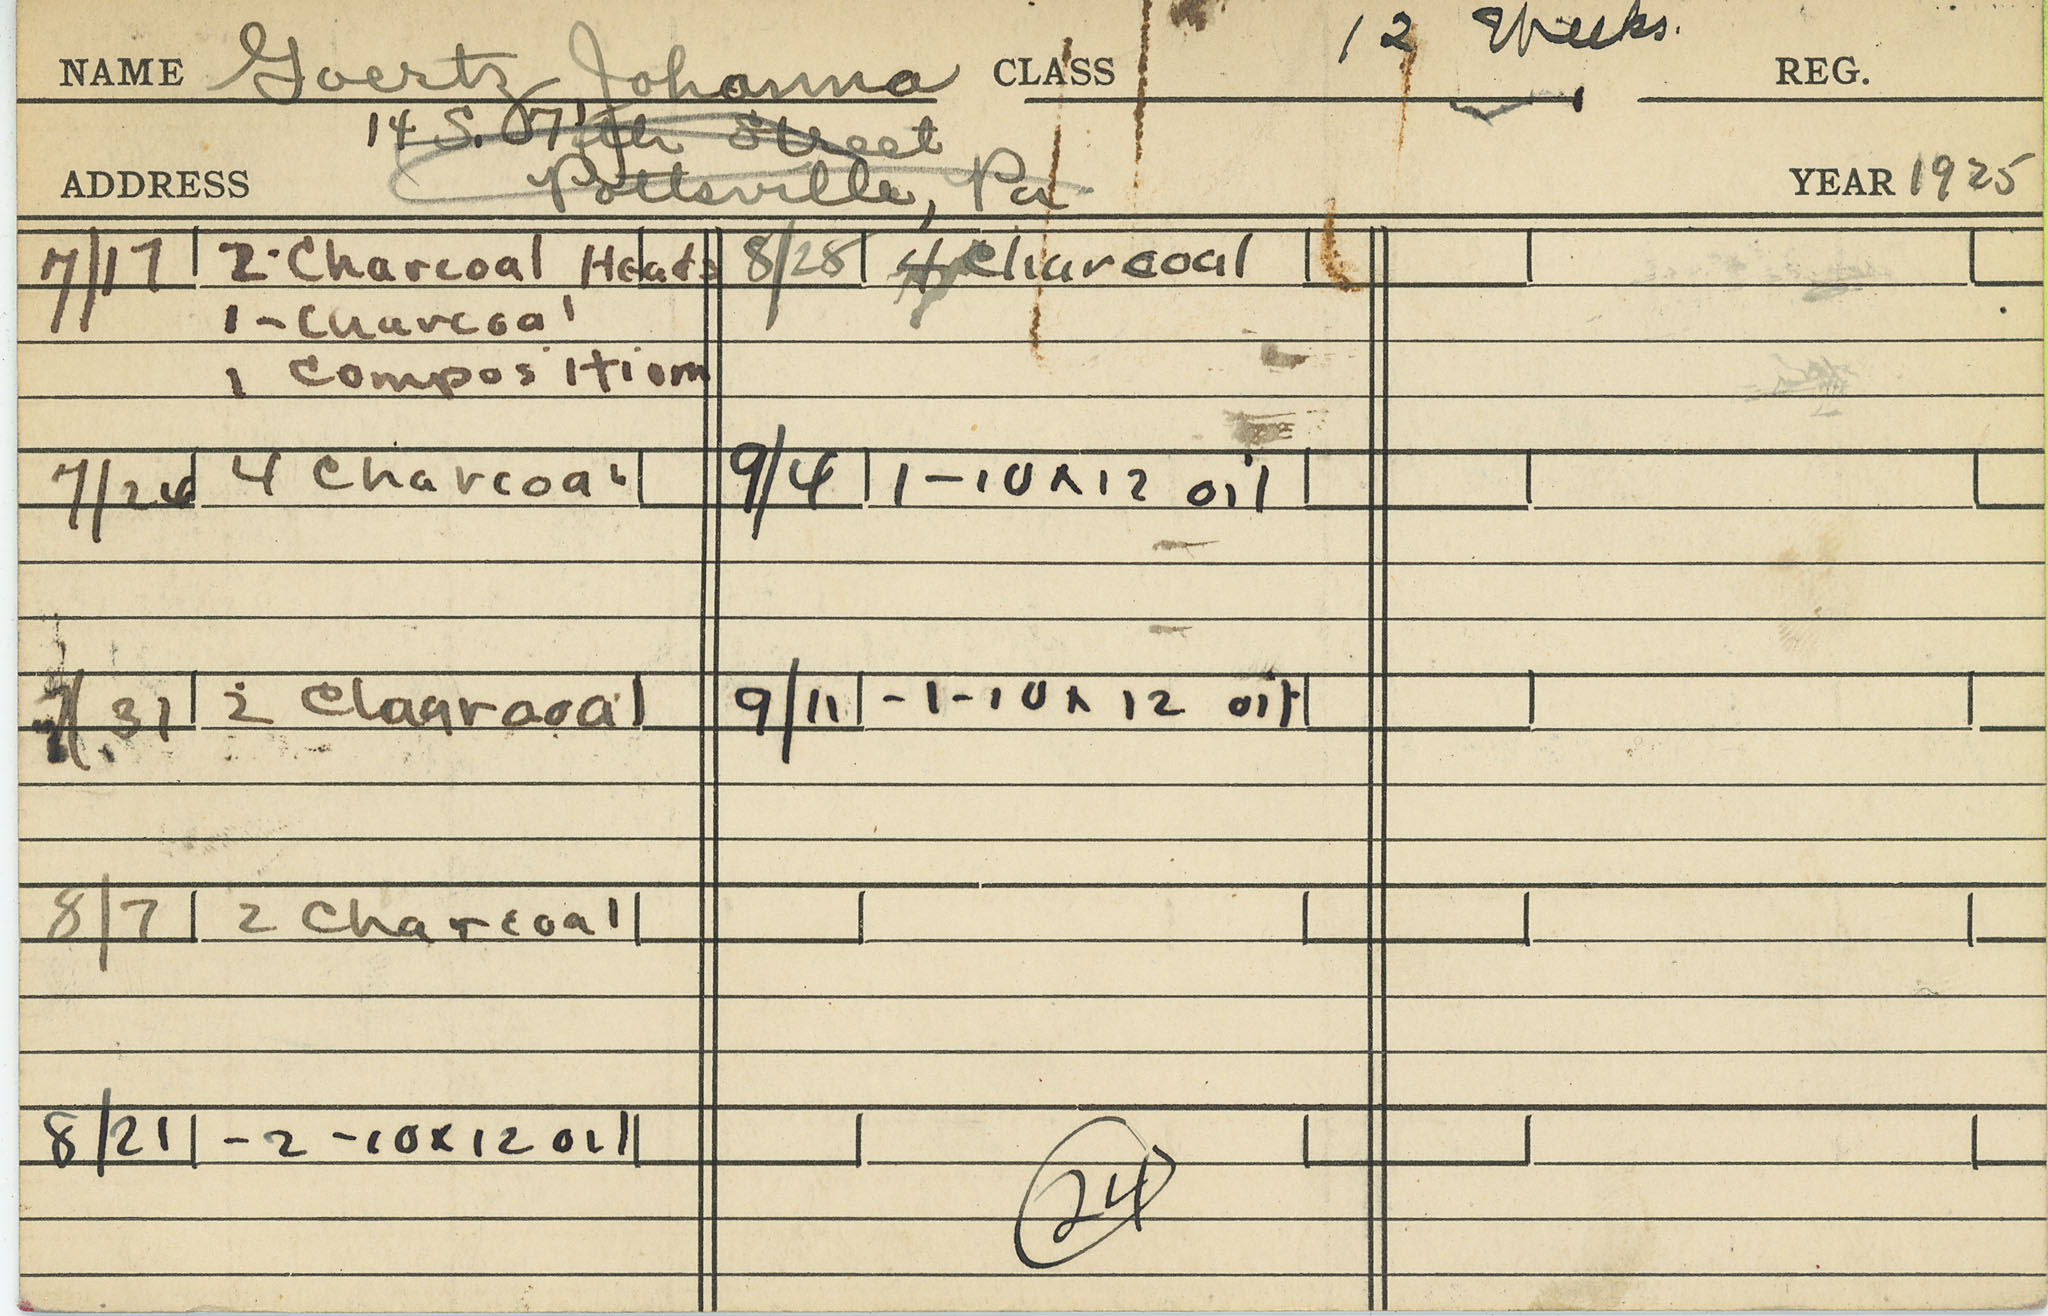 12 Weeks.
NAME Goertz Johanna CLASS REG.
14 S. 17th Street
ADDRESS Pottsville, Pa YEAR 1925
7/17 2 Charcoal Heads
1 - Charcoal
1 Composition
7/24 4 Charcoal
7/31 2 Clagraoal
8/7 2 Charcoal
8/21 - 2 - 10 x 12 oil
8/28 4 Charcoal
9/4 1 - 10 x 12 oil
9/11 - 1 - 10 x 12 oil
24